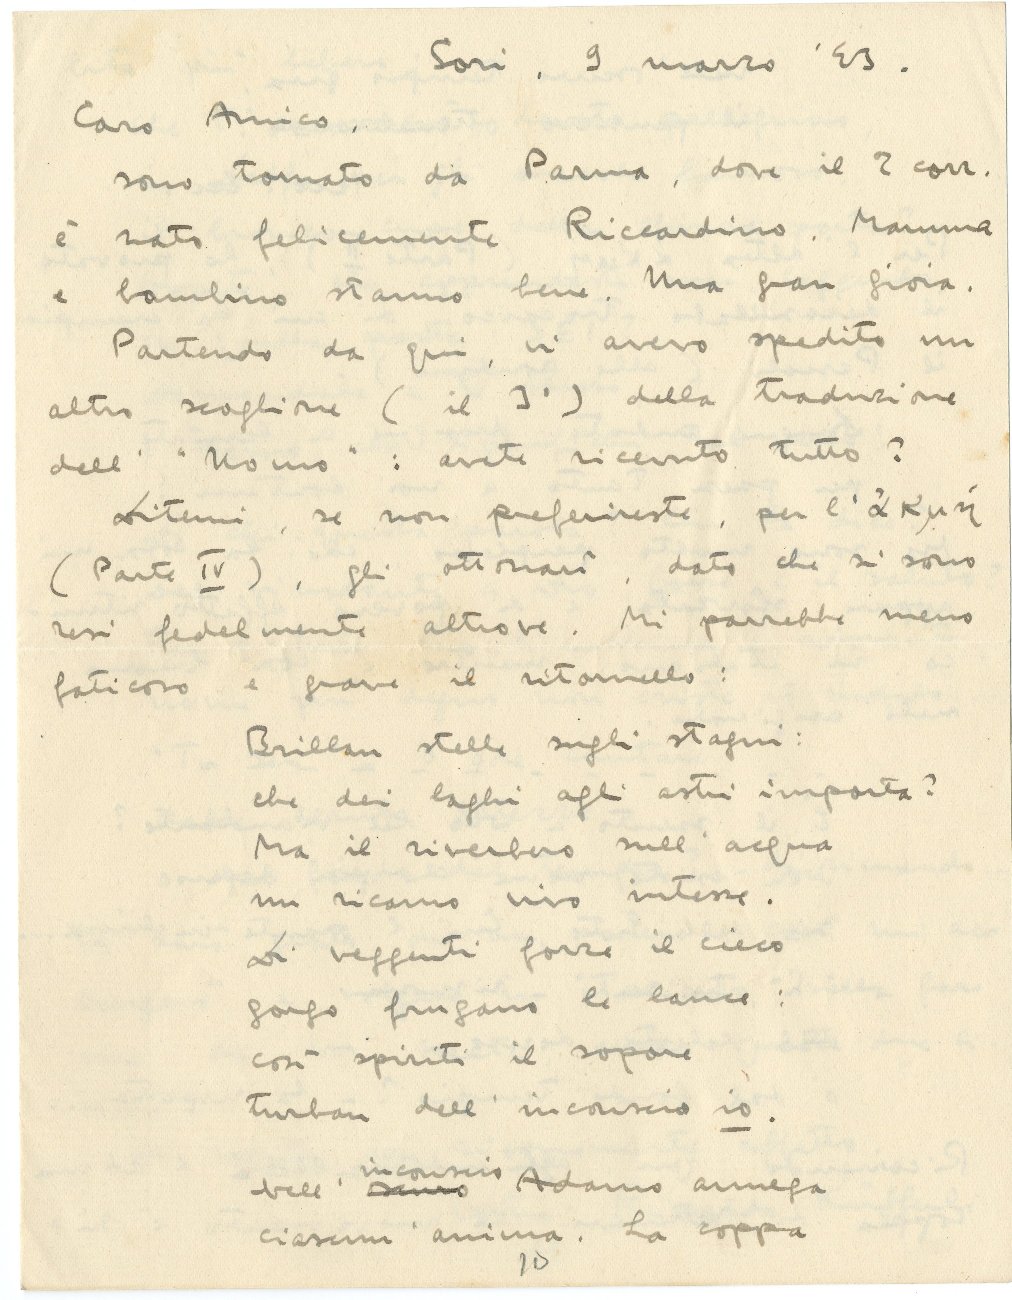 Sori, 9 marzo '43.
Caro Amico,
sono tornato da Parma, dove il 2 corr.
è nato felicemente Riccardino. Mamma
e bambino stanno bene. Una gran gioia.
Partendo da qui, vi avevo spedito un
altro scaglione (il 3°) della traduzione
dell' "Uomo": avete ricevuto tutto?
Ditemi, se non preferireste, per l'ἀκμή
(Parte IV), gli ottonari, dato che si sono
resi fedelmente altrove. Mi parrebbe meno
faticoso e grave il ritornello:
Brillan stelle sugli stagni:
che dei laghi agli astri importa?
Ma il riverbero sull'acqua
un ricamo vivo intesse.
Di veggenti forze il cieco
gorgo frugano le lance:
così spiriti il sopore
turban dell'inconscio io.
Nell' inconscio Adamo annega
ciascun'anima. La coppa